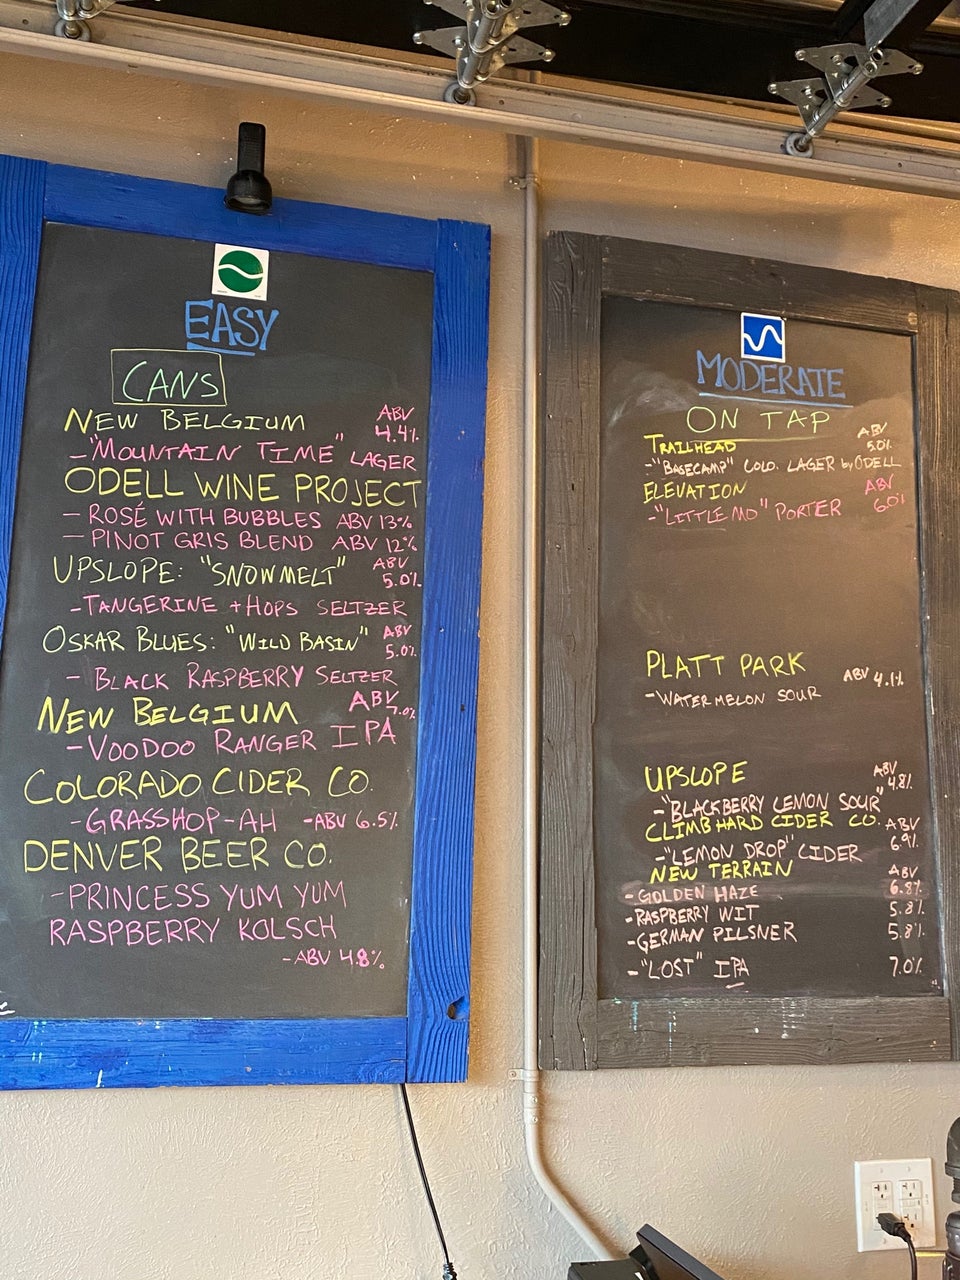 EASY
CANS
NEW BELGIUM ABV 4.4%
-"MOUNTAIN TIME" LAGER
ODELL WINE PROJECT
- ROSÉ WITH BUBBLES ABV 13%
- PINOT GRIS BLEND ABV 12%
UPSLOPE: "SNOWMELT" ABV 5.0%
-TANGERINE + HOPS SELTZER
OSKAR BLUES: "WILD BASIN" ABV 5.0%
- BLACK RASPBERRY SELTZER
NEW BELGIUM ABV 7.0%
-VOODOO RANGER IPA
COLORADO CIDER CO.
-GRASSHOP-AH -ABV 6.5%
DENVER BEER CO.
-PRINCESS YUM YUM
RASPBERRY KOLSCH
-ABV 4.8%
MODERATE
ON TAP
TRAILHEAD ABV 5.0%
-"BASECAMP" COLO. LAGER by ODELL
ELEVATION ABV 6.0%
-"LITTLE MO" PORTER
PLATT PARK
-WATERMELON SOUR ABV 4.1%
UPSLOPE ABV 4.8%
-"BLACKBERRY LEMON SOUR"
CLIMB HARD CIDER CO. ABV 6.9%
-"LEMON DROP" CIDER
NEW TERRAIN ABV
-GOLDEN HAZE 6.8%
-RASPBERRY WIT 5.8%
-GERMAN PILSNER 5.8%
-"LOST" IPA 7.0%